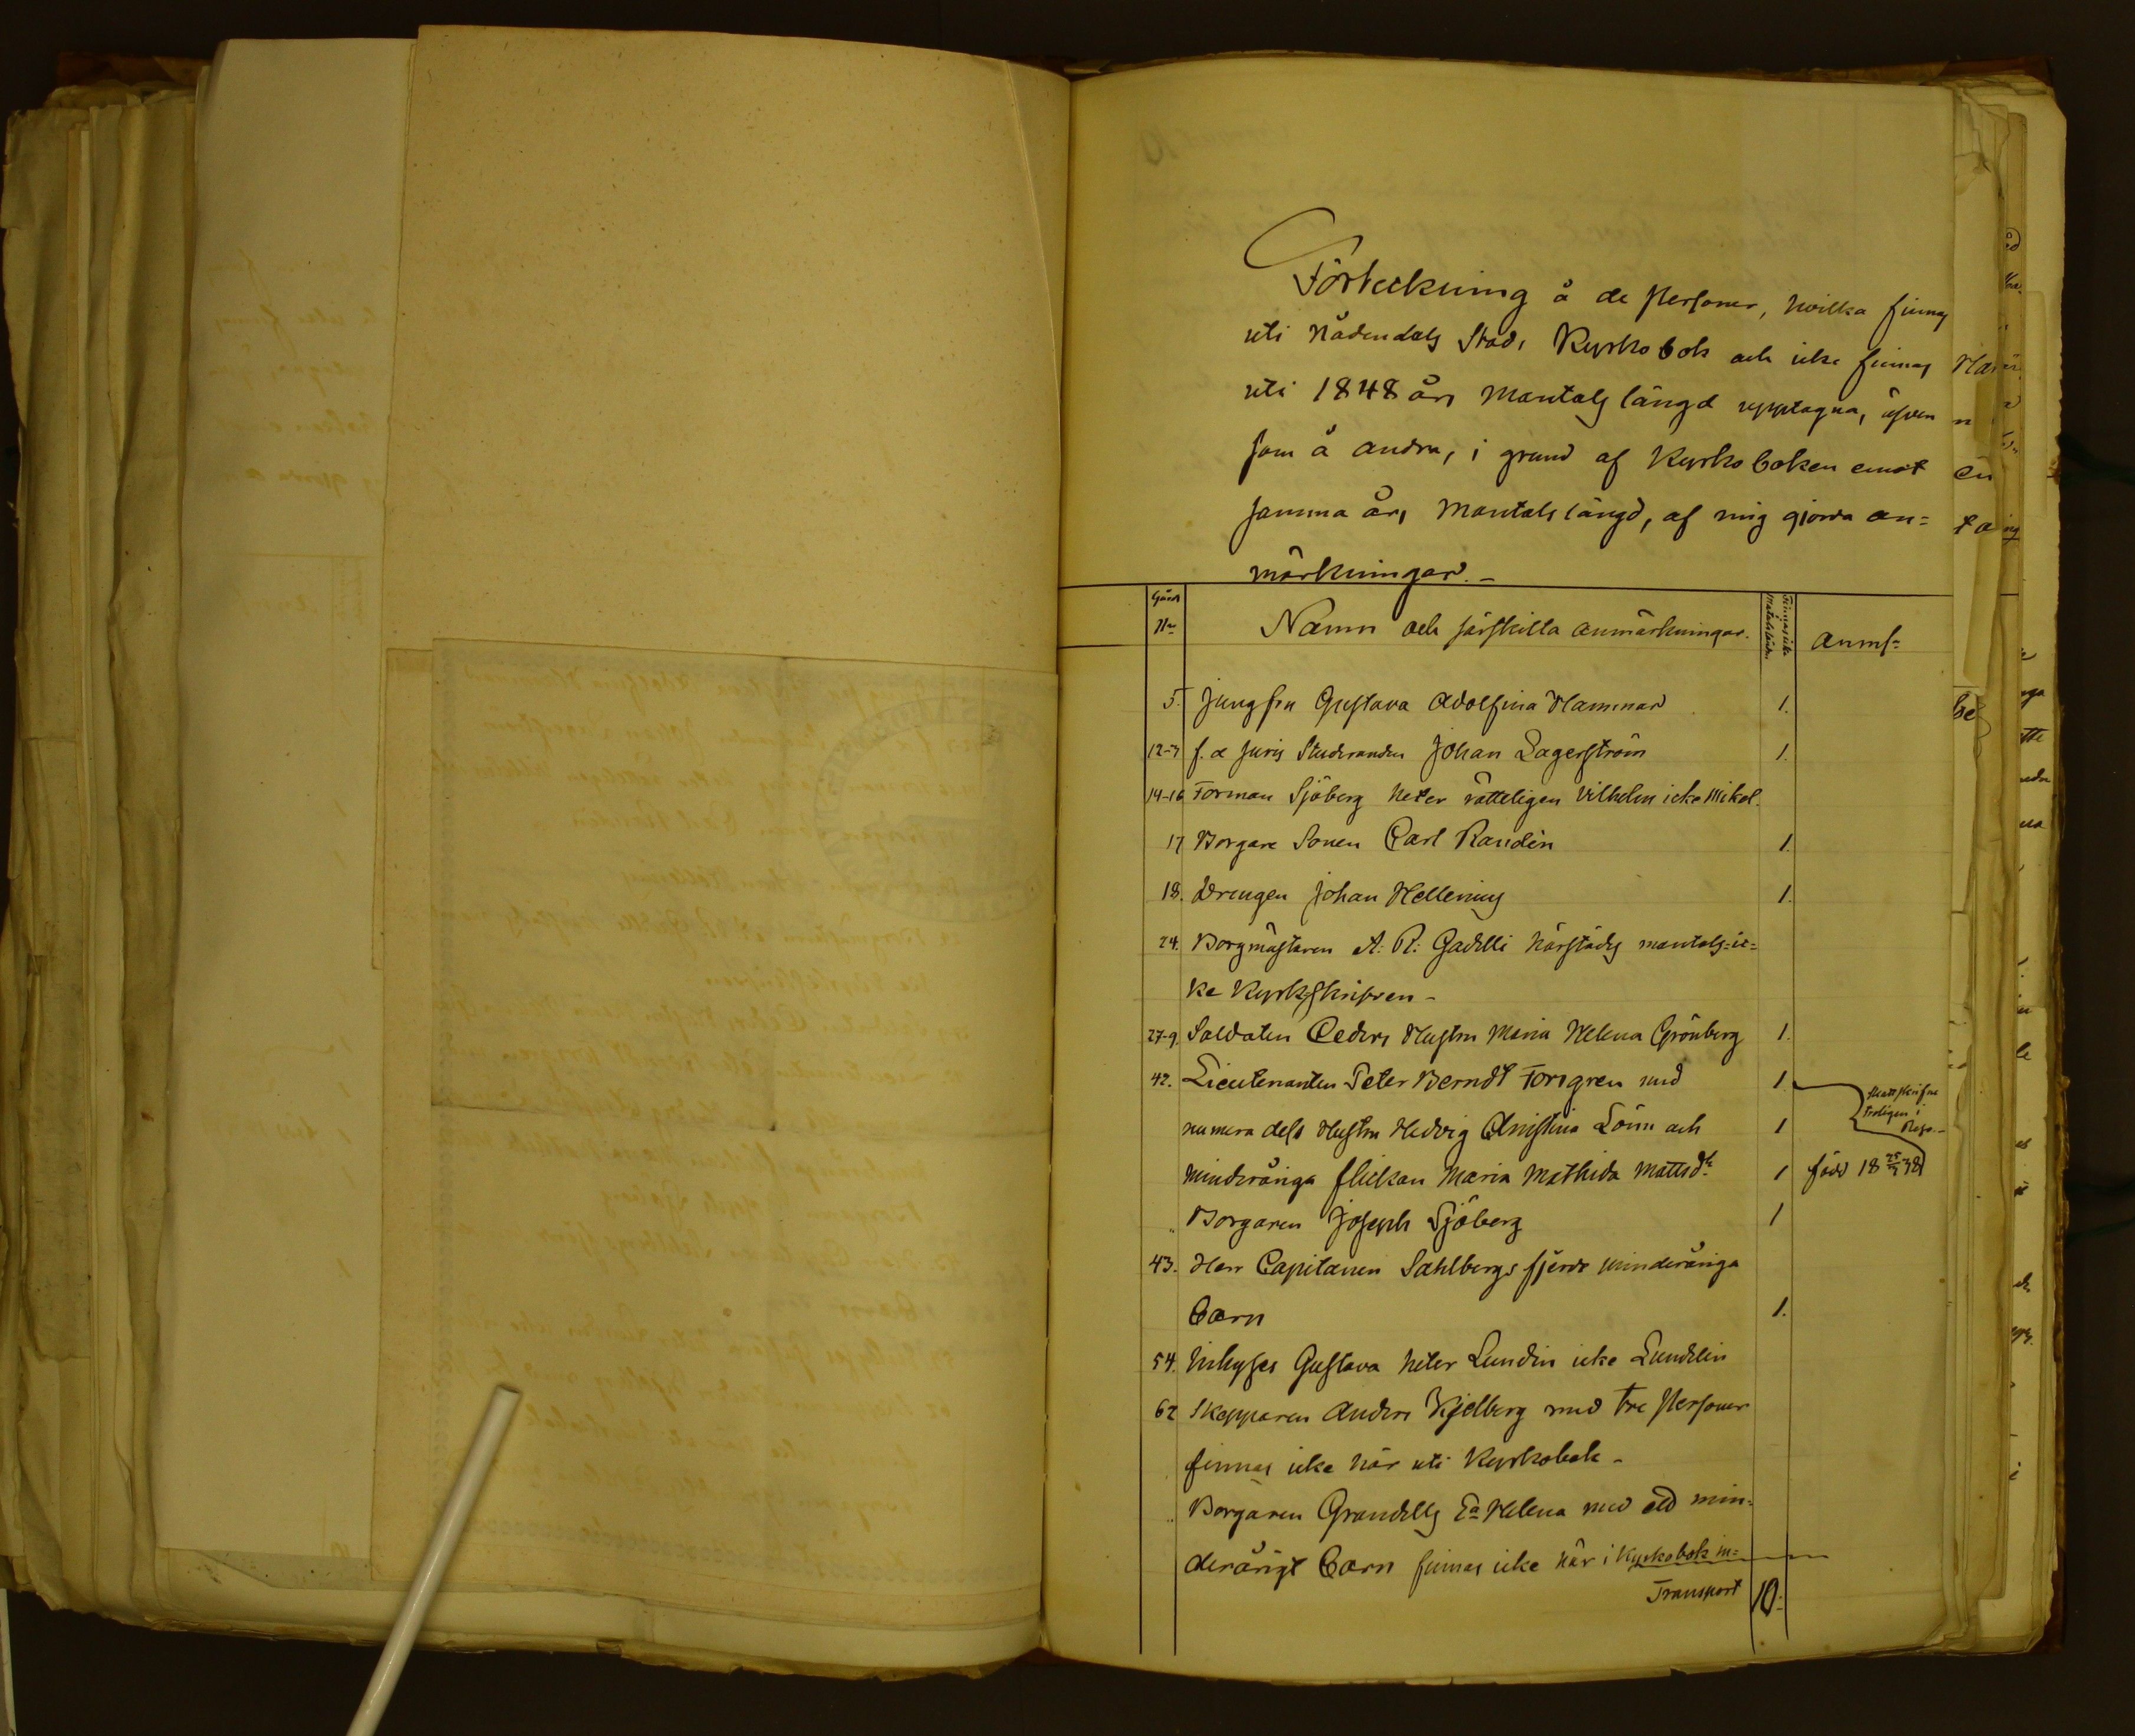 Förteckning å de Personer, hvilka finnas
uti Nådendals Stads Kyrkobok och icke finnas
uti 1848 års Mantals längd upptagna, äfven
som å andra, i grund af Kyrkoboken emot
samma års Mantals längd, af mig gjorda an=
märkningar.-
Gårds
Nr
Namn och särskilta anmärkningar.
Finnas icke
Anms:
5. Jungfru Gustava Adolfina Hammar 1.
12-3 f.d Juris Studeranden Johan Lagerström 1.
14-16 Forman Sjöberg heter rätteligen Vilhelm icke Mikel.
17 Borgare Sonen Carl Randén 1.
18. Drengen Johan Hellenius 1.
24. Borgmästaren A: R: Gadelli härstädes mantals-ic=
ke Kyrkskrifven-
27-9. Soldaten Ceders Hustru Maria Helena Grönberg 1.
42. Lieutenanten Peter Berndt Forsgren med 1
numera dess Hustru Hedvig Christina Lönn och 1
minderåriga flickan Maria Mathida Mattsdr 1 född 18 25/3 38
Mantskrifne
troligen i
Reso.-
" Borgaren Joseph Sjöberg 1
43. Herr Capitainen Sahlbergs fjerde minderåriga
Barn 1.
54. Inhyses Gustava heter Lundin icke Lundelin
62 Skepparen Anders Kjellberg med tre Personer
finnas icke här uti Kyrkobok-
" Borgaren Grandells Ea Helena med ett min=
derårigt Barn finnas icke här i Kyrkobok
Transport 10.